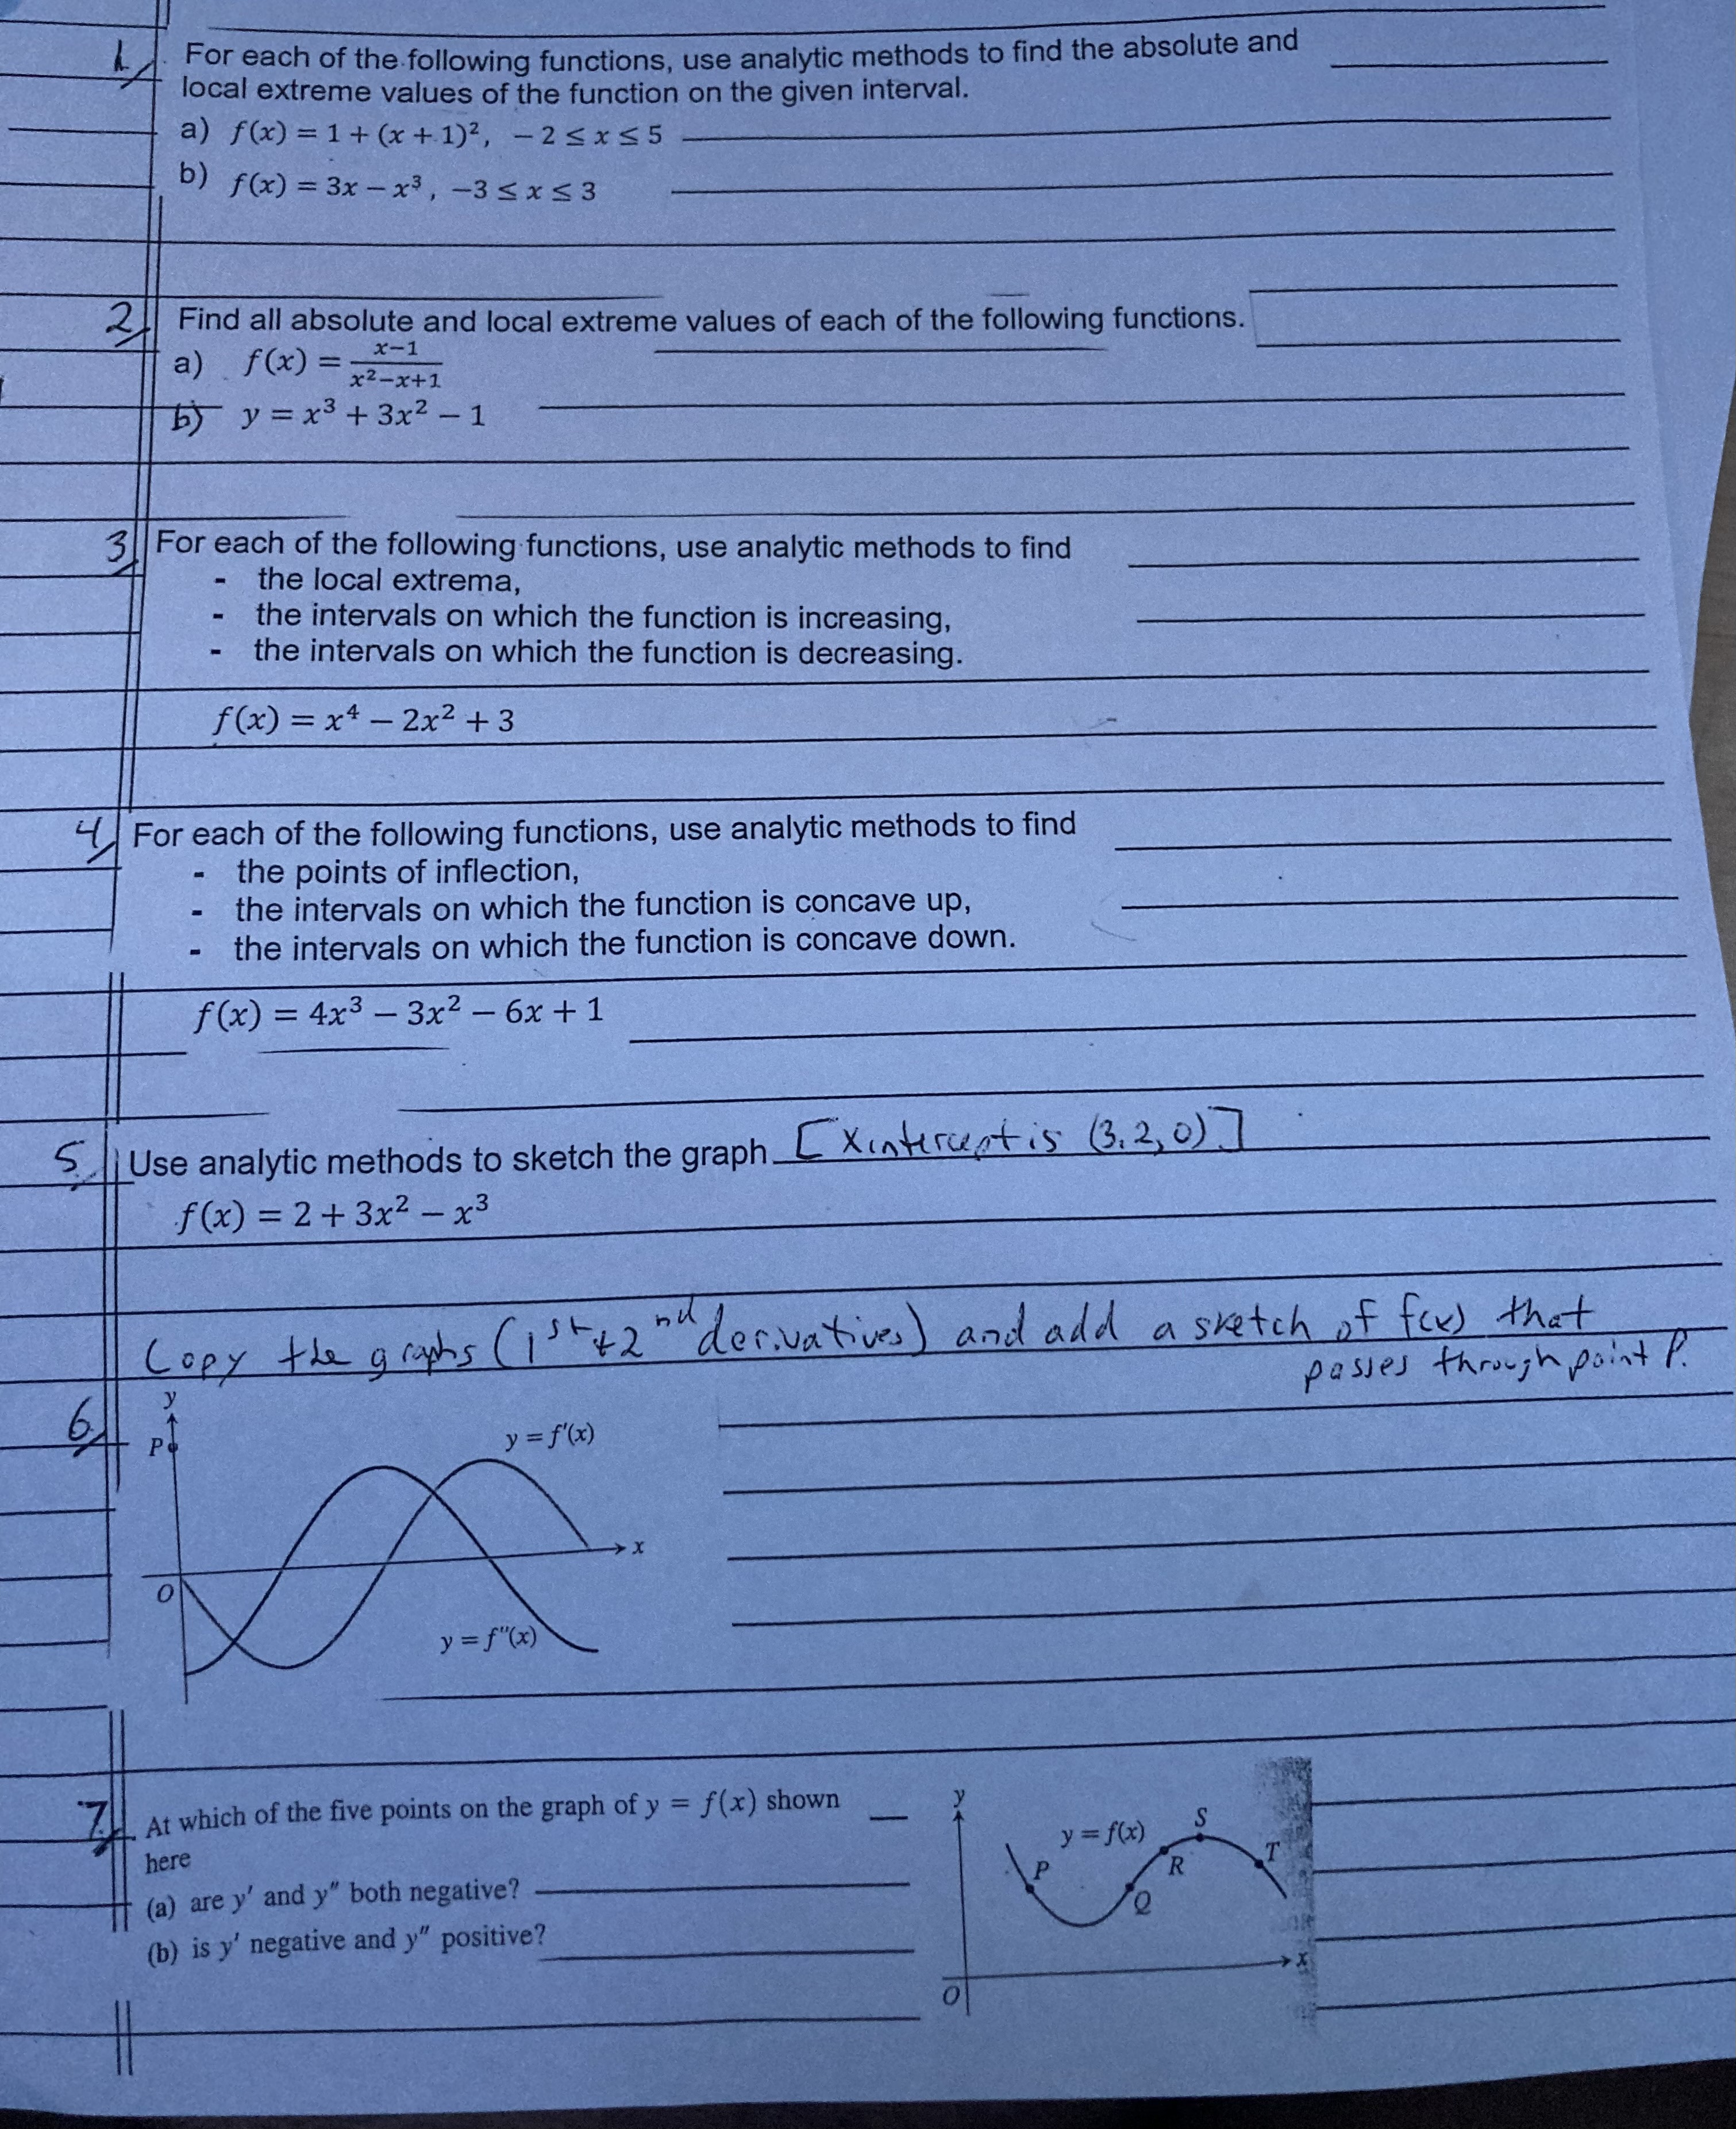 1. For each of the following functions, use analytic methods to find the absolute and
local extreme values of the function on the given interval.
a) f(x) = 1 + (x + 1)², − 2 ≤ x ≤ 5
b) f(x) = 3x − x³ , −3 ≤ x ≤ 3
2. Find all absolute and local extreme values of each of the following functions.
a) f(x) = (x−1)/(x²−x+1)
b) y = x³ + 3x² − 1
3. For each of the following functions, use analytic methods to find
- the local extrema,
- the intervals on which the function is increasing,
- the intervals on which the function is decreasing.
f(x) = x⁴ − 2x² + 3
4. For each of the following functions, use analytic methods to find
- the points of inflection,
- the intervals on which the function is concave up,
- the intervals on which the function is concave down.
f(x) = 4x³ − 3x² − 6x + 1
5. Use analytic methods to sketch the graph [x intercept is (3.2,0)]
f(x) = 2 + 3x² − x³
Copy the graphs (1st + 2nd derivatives) and add a sketch of f(x) that
passes through point P.
6.
y
P
y = f′(x)
x
O
y = f″(x)
7. At which of the five points on the graph of y = f(x) shown
here
(a) are y′ and y″ both negative?
(b) is y′ negative and y″ positive?
y
y = f(x)
S
P
R
T
Q
x
O